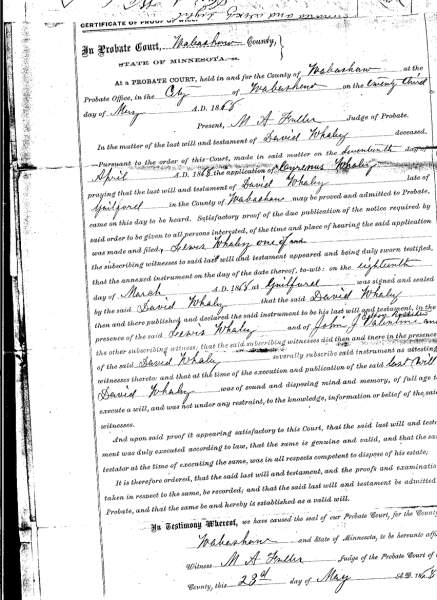 CERTIFICATE OF PROOF OF WILL.
In Probate Court, Wabashaw County,
STATE OF MINNESOTA—ss.
At a PROBATE COURT, held in and for the County of Wabashaw at the
Probate Office, in the City of Wabashaw on the twenty third
day of May A.D. 1868
Present, M A Fuller Judge of Probate.
In the matter of the last will and testament of David Whaley deceased.
Pursuant to the order of this Court, made in said matter on the seventeenth day of
April A.D. 1868, the application of Whaley
praying that the last will and testament of David Whaley late of
Guilford in the County of Wabashaw may be proved and admitted to Probate,
came on this day to be heard. Satisfactory proof of the due publication of the notice required by
said order to be given to all persons interested, of the time and place of hearing the said application
was made and filed, Lewis Whaley one of
the subscribing witnesses to said last will and testament appeared and being duly sworn testified,
that the annexed instrument on the day of the date thereof, to-wit: on the eighteenth
day of March A.D. 1868 at Guilford was signed and sealed
by the said David Whaley that the said David Whaley
then and there published and declared the said instrument to be his last will and testament, in the
presence of the said Lewis Whaley and of John J Valentine
the other subscribing witness, that the said subscribing witnesses did then and there in the presence
of the said David Whaley severally subscribe said instrument as attesting
witnesses thereto and that at the time of the execution and publication of the said last Will
David Whaley was of sound and disposing mind and memory, of full age t
execute a will, and was not under any restraint, to the knowledge, information or belief of the sa
witnesses.
And upon said proof it appearing satisfactory to this Court, that the said last will and testa
ment was duly executed according to law, that the same is genuine and valid, and that the sa
testator at the time of executing the same, was in all respects competent to dispose of his estate;
It is therefore ordered, that the said last will and testament, and the proofs and examinatio
taken in respect to the same, be recorded; and that the said last will and testament be admitted
Probate, and that the same be and hereby is established as a valid will.
In Testimony Whereof, we have caused the seal of our Probate Court, for the County
Wabashaw and State of Minnesota, to be hereunto affi
Witness M A Fuller Judge of the Probate Court of
County, this 23d day of May A.D. 1868